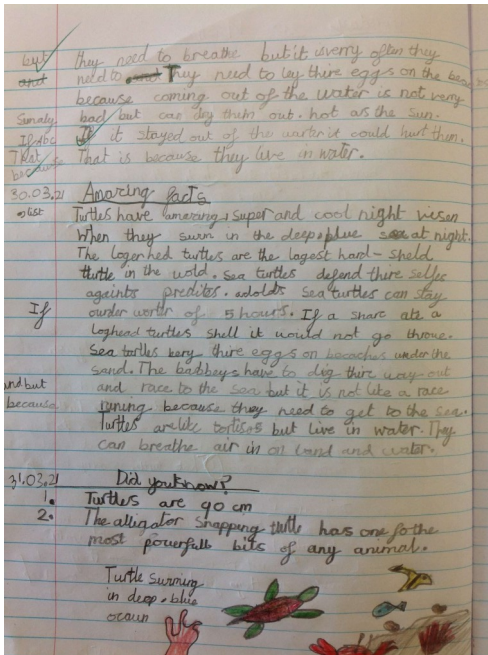 but they need to breathe but it is verry often they
and need to They need to lay thire eggs on the
because coming out of the water is not verry
bad but can dry them out. hot as the sun.
If it stayed out of the warter it could hurt them.
That That is because they live in water.
because
30.03.21 Amazing facts
list Turtles have amazing, super and cool night visen
When they swim in the deep, blue sea at night.
The logerhed turtles are the lagest hard-sheld
turtle in the wold. Sea turtles defend thire selfes
againts predites. adolds sea turtles can stay
under worter of 5 hours. If a sharc ate a
If loghead turtles shell it would not go throue.
Sea turtles bery thire eggs on beaches under the
sand. The babbeys have to dig thire way out
and but and race to the sea but it is not like a race
because runing because they need to get to the sea.
Turtles are like tortises but live in water. They
can breathe air in on land and water.
31.03.21 Did you know?
1. Turtles are 90 cm
2. The alligator snapping turtle has one fo the
most powerfull bits of any animal.
Turtle swiming
in deep, blue
ocaun